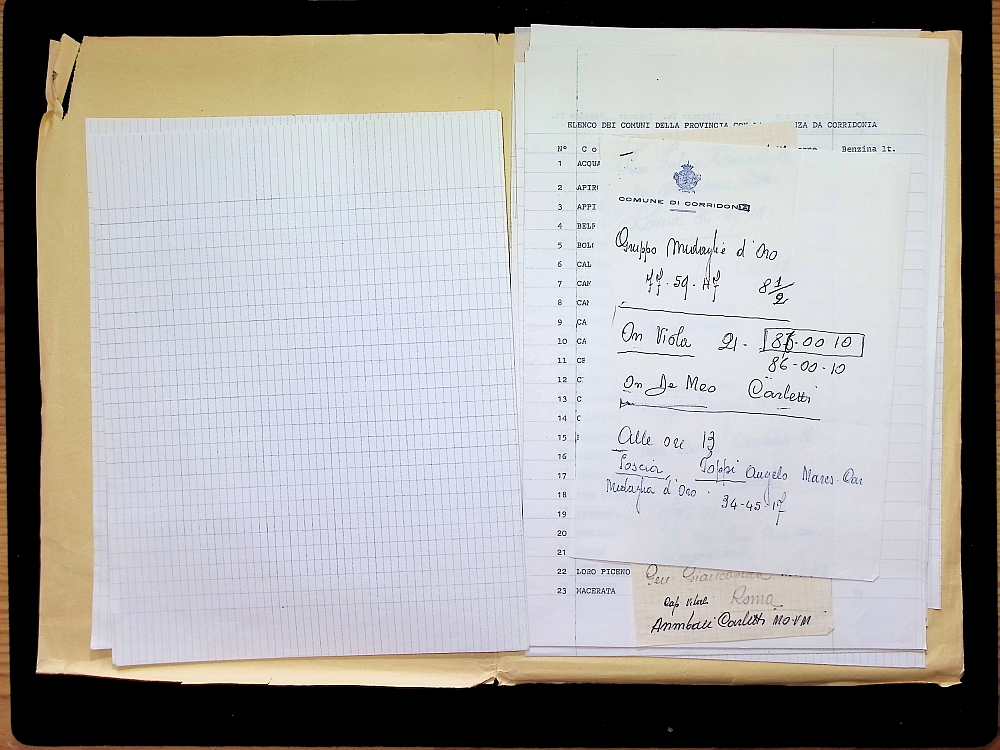 ELENCO DEI COMUNI DELLA PROVINCIA CON ZA DA CORRIDONIA
N° Co Benzina lt.
1 ACQUA
2 APIRO
3 APPI
4 BELF
5 BOLO
6 CAL
7 CAM
8 CAM
9 CA
10 CA
11 CE
12 C
13 C
14 C
15
16
17
18
19
20
21
22 LORO PICENO
23 MACERATA
COMUNE DI CORRIDONIA
Gruppo Medaglie d'Oro
77.59.47 8 1/2
On Viola 21- 86.00 10
86-00-10
On De Meo Carletti
Alle ore 13
Foscia, Poppi Angelo Mares. Car
Medaglia d'Oro 34-45-17
Gen
Roma
Annibale Carletti MO.VM